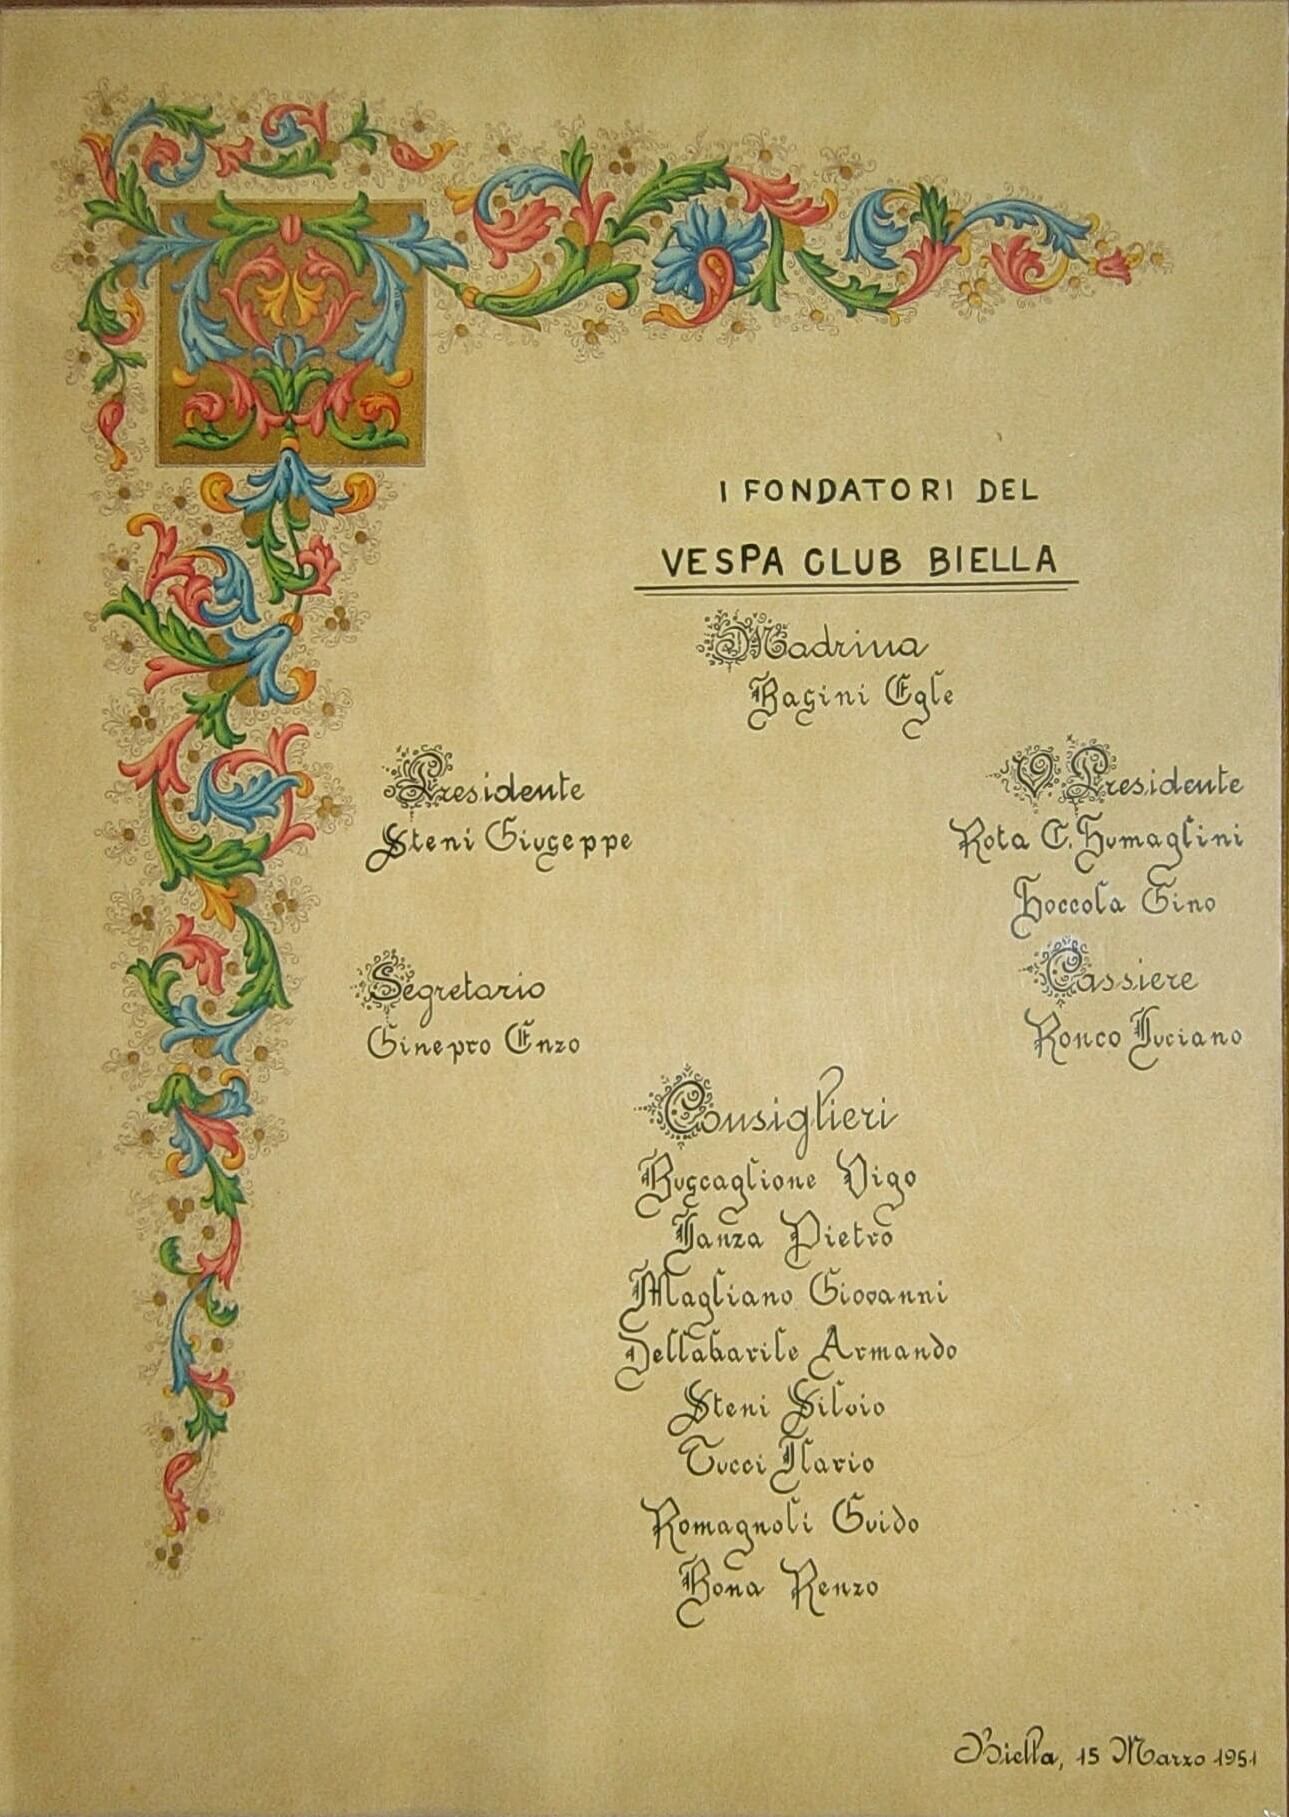 I FONDATORI DEL
VESPA CLUB BIELLA
Madrina
Basini Egle
Presidente
Steni Giuseppe
V Presidente
Rota C. Fumaglini
Foccola Gino
Segretario
Ginepro Enzo
Cassiere
Ronco Luciano
Consiglieri
Buscaglione Vigo
Lanza Pietro
Magliano Giovanni
Dellabarile Armando
Steni Silvio
Tucci Ilario
Romagnoli Guido
Bona Renzo
Biella, 15 Marzo 1951